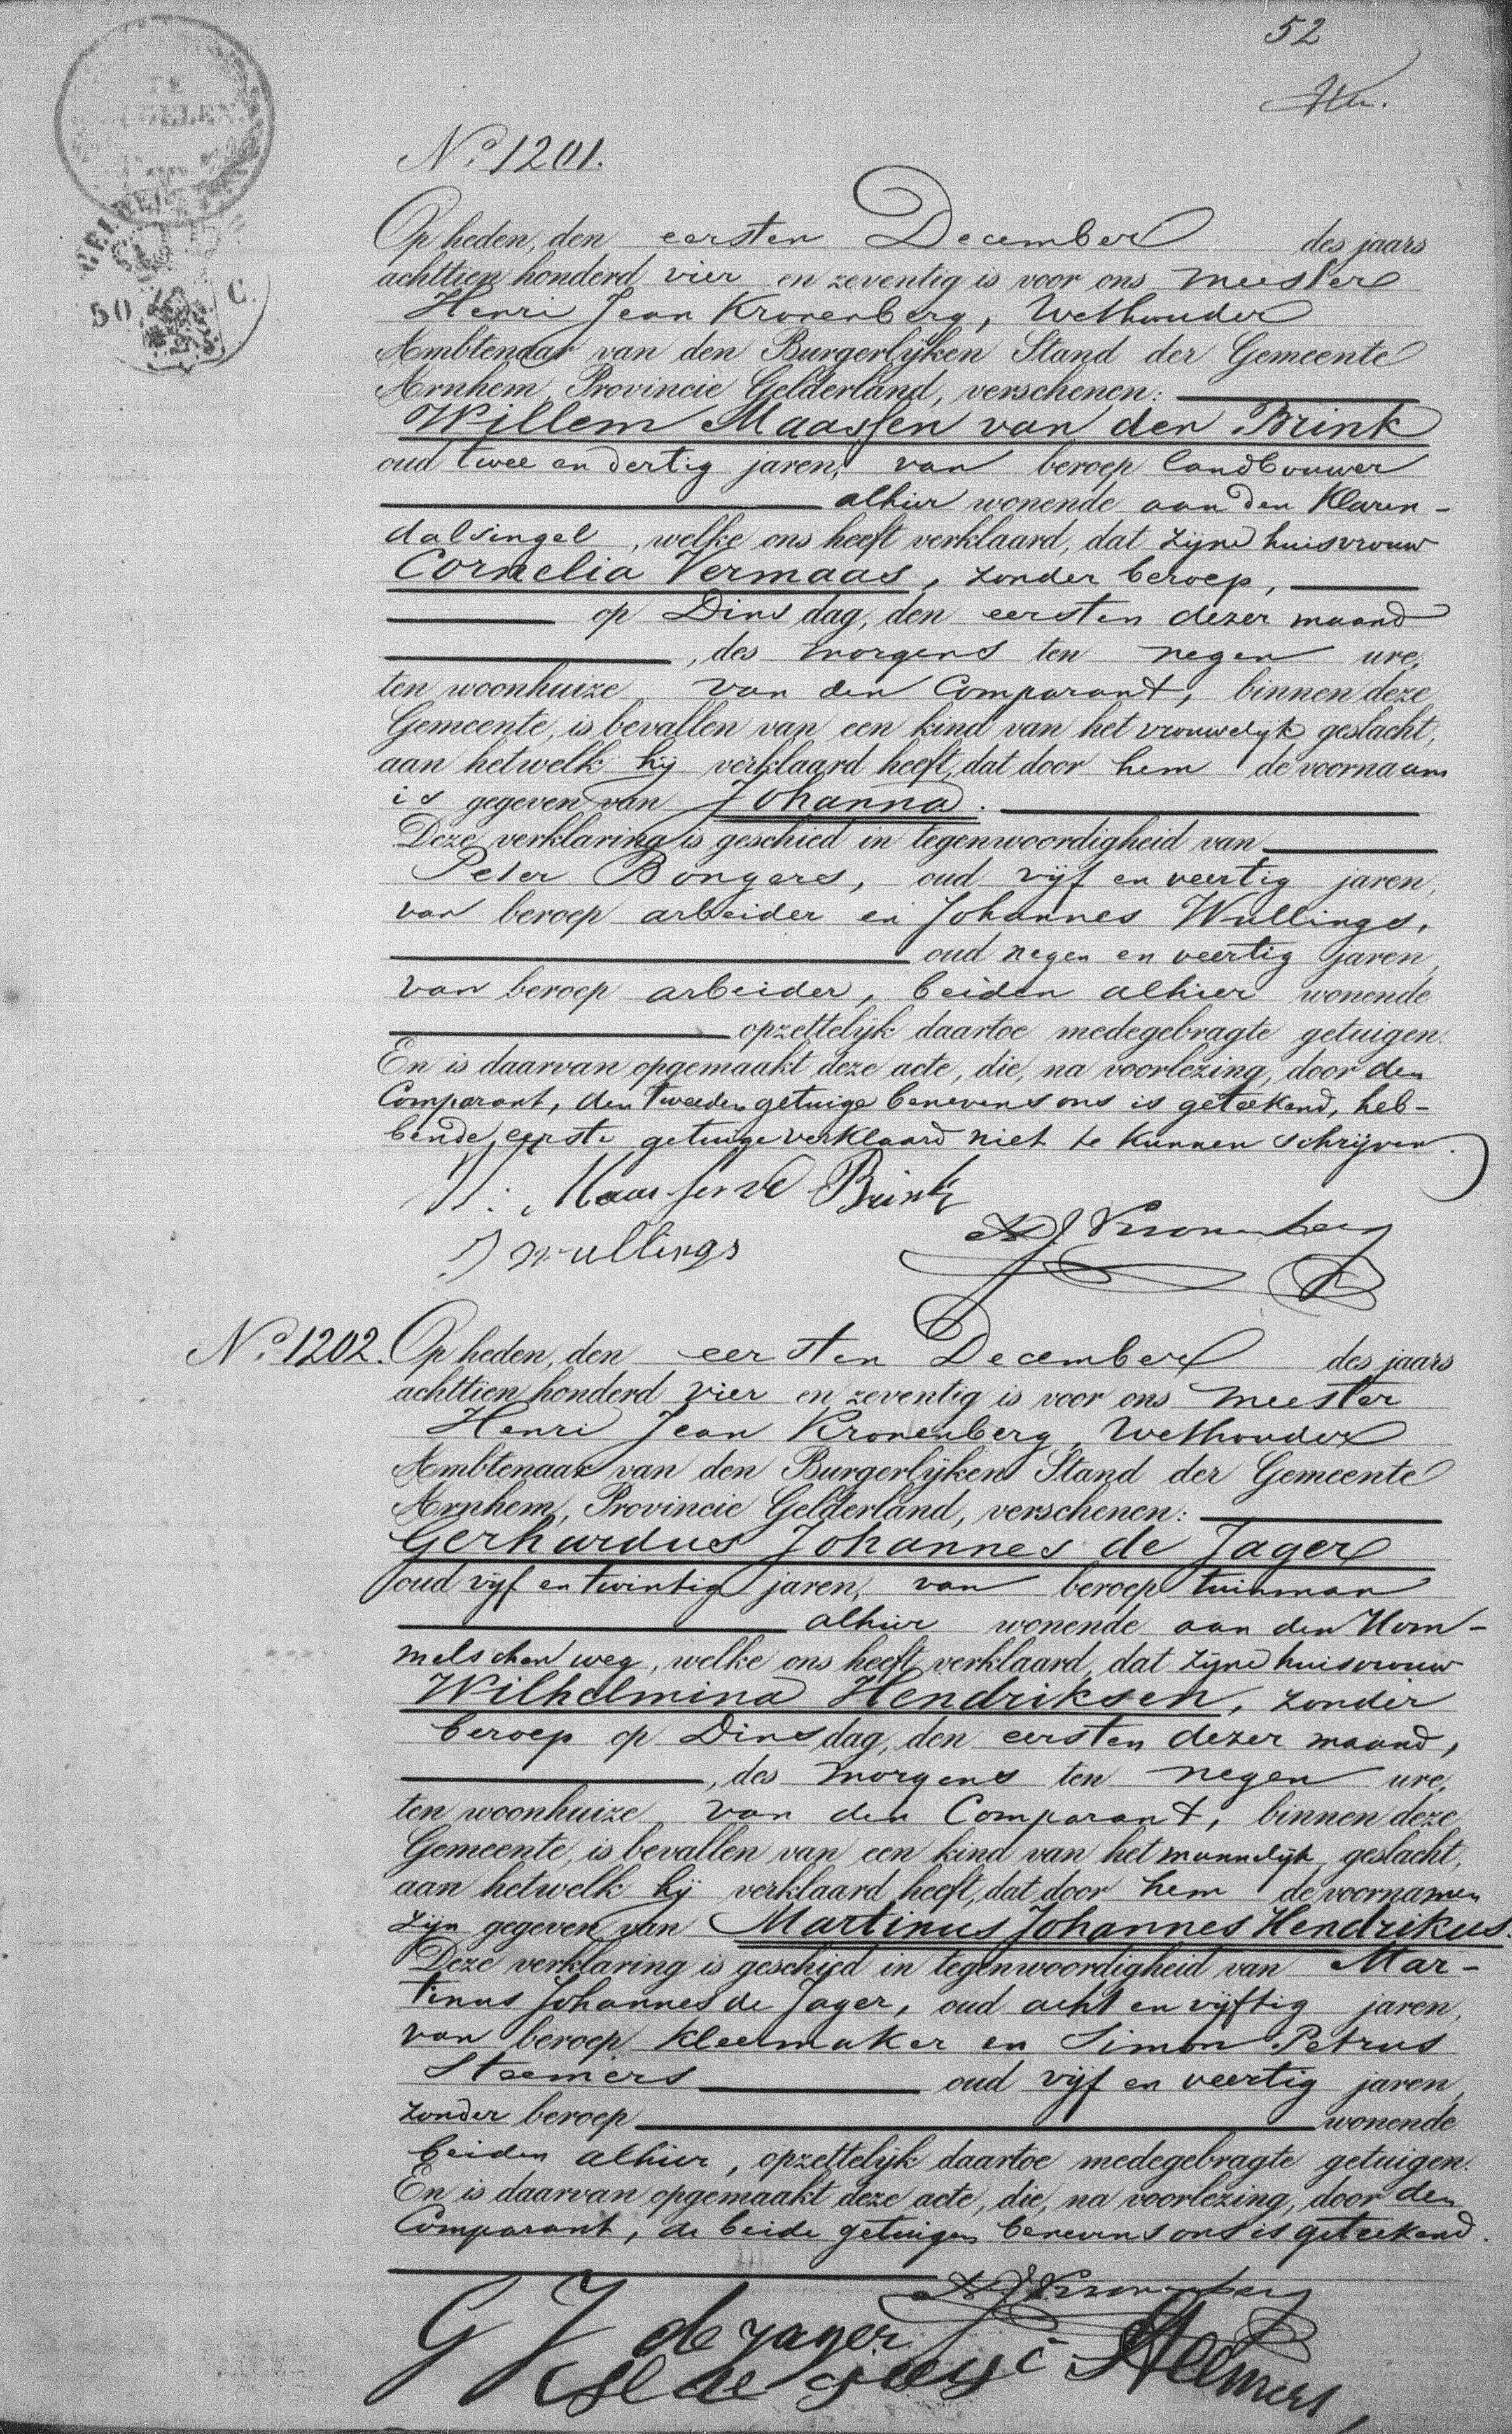 52
TE
GELEN
50 C.
No. 1201.
Op heden, den eersten December des jaars
achttien honderd vier en zeventig is voor ons meester
Henri Jean Kronenberg, Wethouder
Ambtenaar van den Burgerlijken Stand der Gemeente
Arnhem, Provincie Gelderland, verschenen:
Willem Maassen van den Brink
oud twee en dertig jaren, van beroep landbouwer
alhier wonende aan den Klaren-
dalsingel, welke ons heeft verklaard, dat zijne huisvrouw
Cornelia Vermaas, zonder beroep,
op Dinsdag, den eersten dezer maand
, des morgens ten negen ure,
ten woonhuize van den Comparant, binnen deze
Gemeente, is bevallen van een kind van het vrouwelijk geslacht,
aan hetwelk hij verklaard heeft, dat door hem de voornaam
is gegeven van Johanna.
Deze verklaring is geschied in tegenwoordigheid van
Peter Bongers, oud vijf en veertig jaren,
van beroep arbeider en Johannes Wullings,
oud negen en veertig jaren,
van beroep arbeider, beiden alhier wonende
opzettelijk daartoe medegebragte getuigen.
En is daarvan opgemaakt deze acte, die, na voorlezing, door den
Comparant, den tweeden getuige benevens ons is geteekend, heb-
bende eerste getuige verklaard niet te kunnen schrijven.
W. Maassen vd Brink
J Wullings
HJ Kronenberg
No. 1202. Op heden, den eersten December des jaars
achttien honderd vier en zeventig is voor ons meester
Henri Jean Kronenberg, Wethouder
Ambtenaar van den Burgerlijken Stand der Gemeente
Arnhem, Provincie Gelderland, verschenen:
Gerhardus Johannes de Jager
oud vijf en twintig jaren, van beroep tuinman
alhier wonende aan den Hom-
melschen weg, welke ons heeft verklaard, dat zijne huisvrouw
Wilhelmina Hendriksen, zonder
beroep op Dinsdag, den eersten dezer maand,
, des morgens ten negen ure,
ten woonhuize van den Comparant, binnen deze
Gemeente, is bevallen van een kind van het mannelijk geslacht,
aan hetwelk hij verklaard heeft, dat door hem de voornamen
zijn gegeven van Martinus Johannes Hendrikus.
Deze verklaring is geschied in tegenwoordigheid van Mar-
tinus Johannes de Jager, oud acht en vijftig jaren,
van beroep kleermaker en Simon Petrus
Steemers oud vijf en veertig jaren,
zonder beroep wonende
beiden alhier, opzettelijk daartoe medegebragte getuigen.
En is daarvan opgemaakt deze acte, die, na voorlezing, door den
Comparant, de beide getuigen benevens ons is geteekend.
HJ Kronenberg
G J de Jager
Steemers